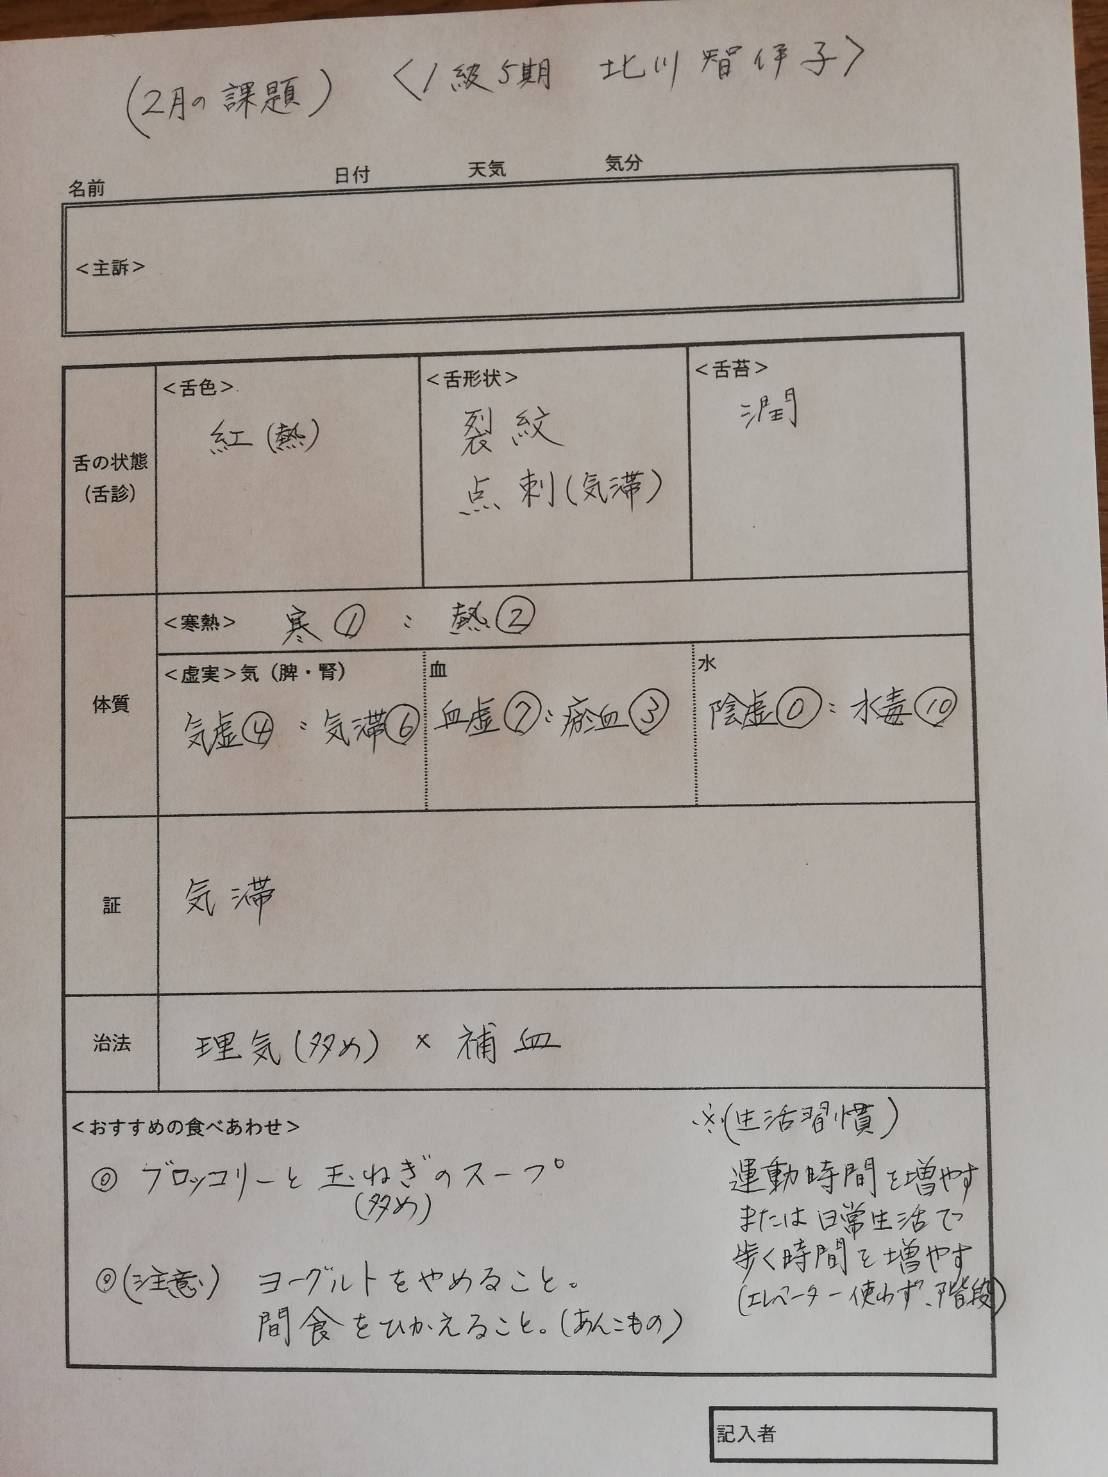 (2月の課題) <1級5期 北川智伊子>
名前 日付 天気 気分
<主訴>
舌の状態
(舌診)
<舌色>
紅(熱)
<舌形状>
裂紋
点刺(気滞)
<舌苔>
潤
体質
<寒熱> 寒① : 熱②
<虚実>気(脾・腎)
気虚④ : 気滞⑥
血
血虚⑦:瘀血③
水
陰虚⓪:水毒⑩
証
気滞
治法
理気(多め) × 補血
<おすすめの食べあわせ>
◎ ブロッコリーと玉ねぎのスープ
(多め)
◎(注意) ヨーグルトをやめること。
間食をひかえること。(あんこもの)
※(生活習慣)
運動時間を増やす
または日常生活で
歩く時間を増やす
(エレベーター使わず、階段)
記入者